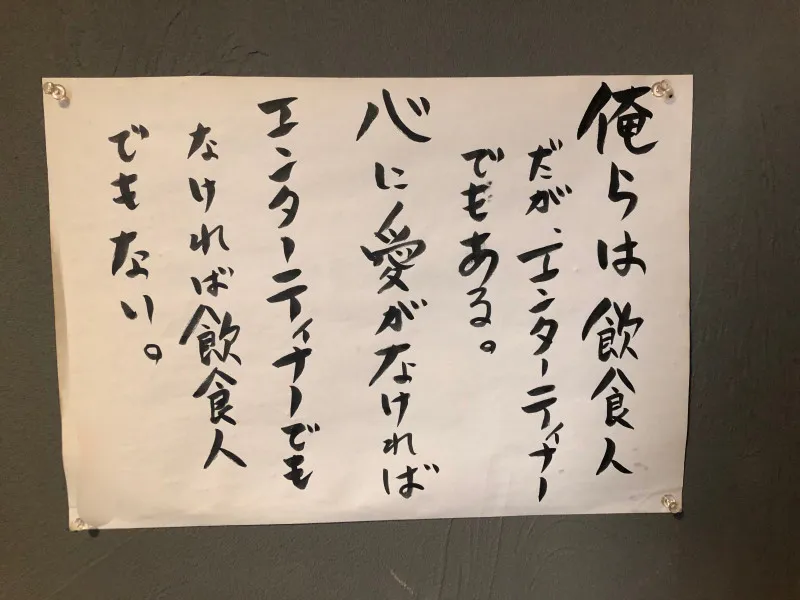 俺らは飲食人
だが、エンターティナー
でもある。
心に愛がなければ
エンターティナーでも
なければ飲食人
でもない。